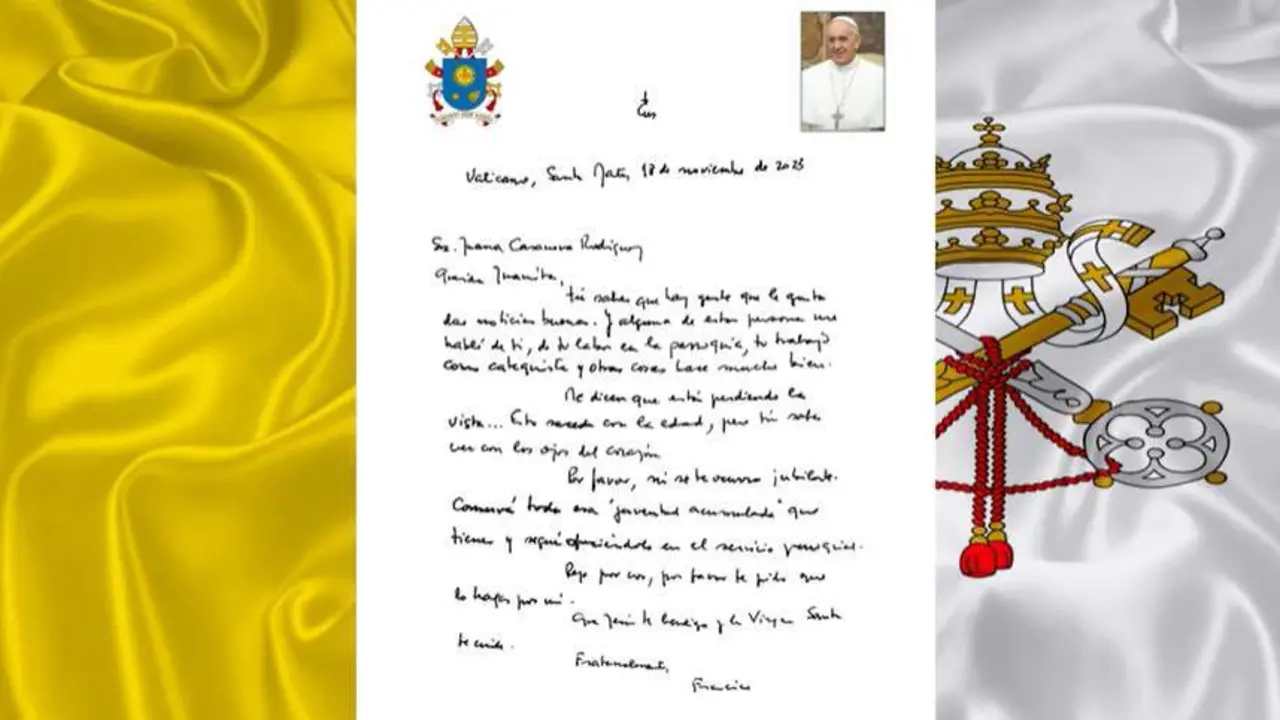 Vaticano, Santa Marta, 18 de noviembre de 2023
Sra. Juana Casanova Rodriguez
Querida Juanita,
tú sabes que hay gente que le gusta
dar noticias buenas. Y alguna de estas personas me
habló de ti, de tu labor en la parroquia, tu trabajo
como catequista y otras cosas hace mucho bien.
Me dicen que estás perdiendo la
vista... Esto sucede con la edad, pero tú sabes
ver con los ojos del corazón
Por favor, ni se te ocurra jubilarte.
Conservá toda esa "juventud acumulada" que
tienes y seguí ofreciéndola en el servicio parroquial.
Rezo por vos, por favor te pido que
lo hagas por mí.
Que Jesús te bendiga y la Virgen Santa
te cuide.
Fraternalmente,
Francisco